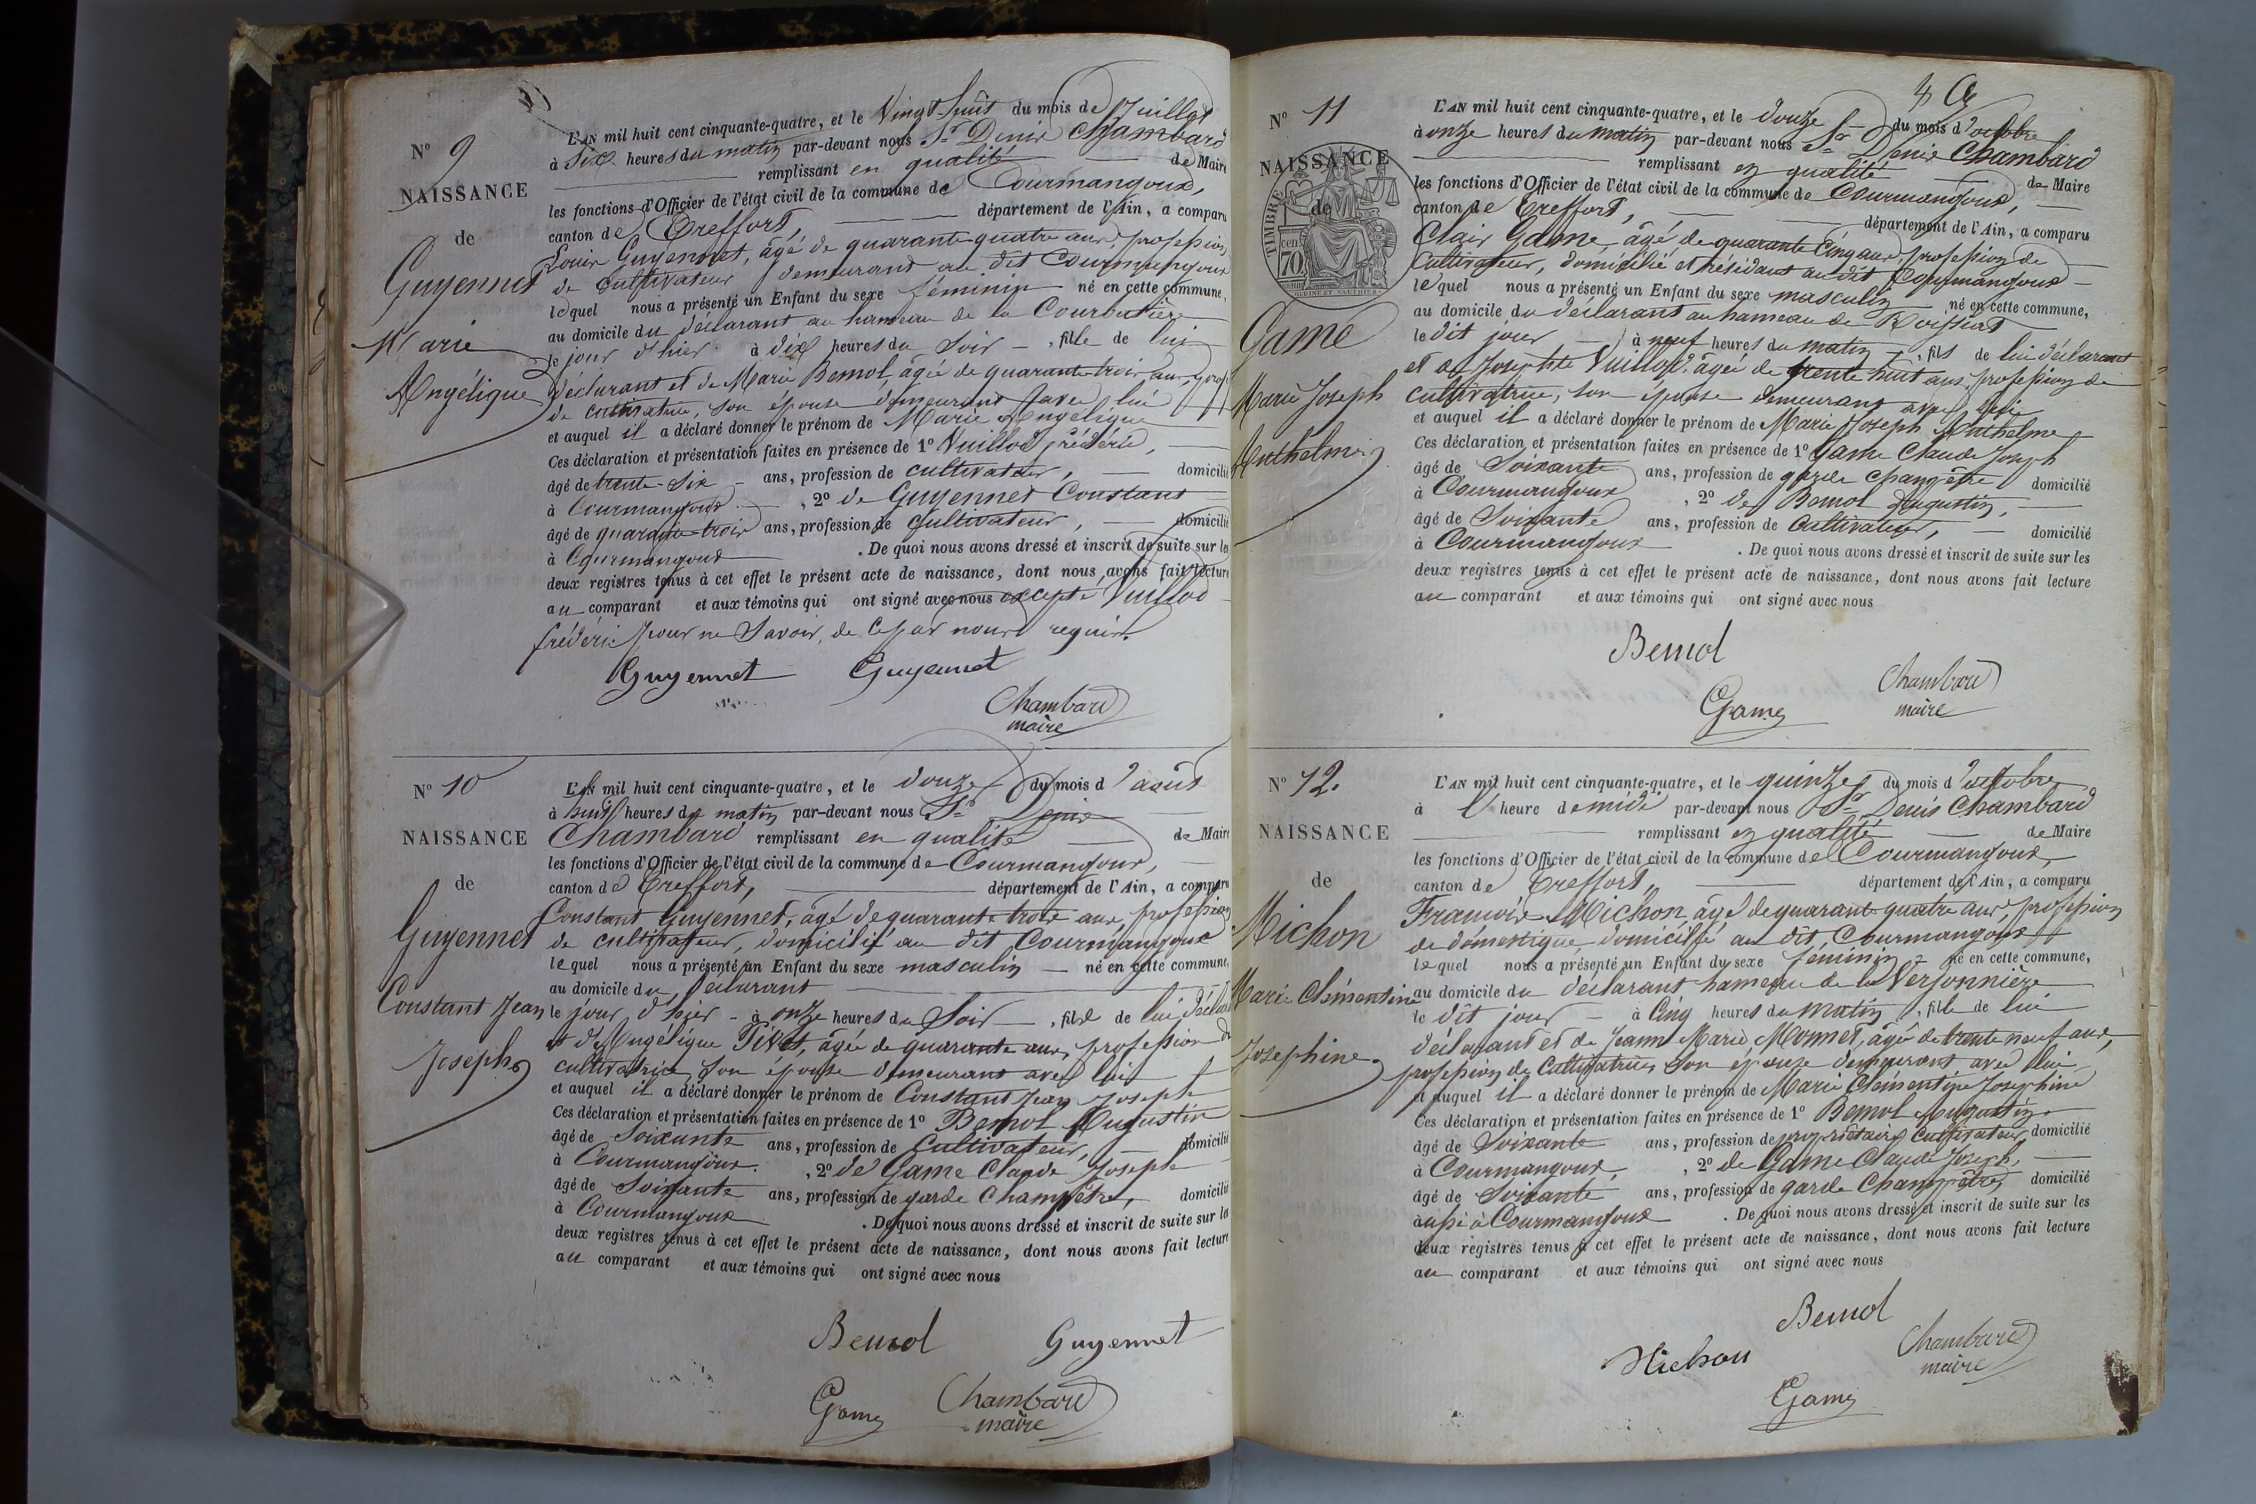 N° 9
NAISSANCE
de
Guyennet
Marie
Angélique
L'AN mil huit cent cinquante-quatre, et le Vingt huit du mois de Juillet
à six heures du matin par-devant nous Sr Denis Chambard
remplissant en qualité de Maire
les fonctions d'Officier de l'état civil de la commune de Courmangoux,
canton de Treffort, département de l'Ain, a comparu
Louis Guyennet, âgé de quarante quatre ans, profession
de cultivateur demeurant au dit Courmangoux
lequel nous a présenté un Enfant du sexe féminin né en cette commune,
au domicile du déclarant au hameau de la Courbatière
le jour d'hier à dix heures du soir, fille de lui
déclarant et de Marie Bemol, âgée de quarante trois ans, prof.
de cultivatrice, son épouse demeurant avec lui
et auquel il a déclaré donner le prénom de Marie Angélique
Ces déclaration et présentation faites en présence de 1° Vuillod frédéric,
âgé de trente-six ans, profession de cultivateur, domicilié
à Courmangoux, 2° de Guyennet Constant
âgé de quarante-trois ans, profession de cultivateur, domicilié
à Courmangoux. De quoi nous avons dressé et inscrit de suite sur les
deux registres tenus à cet effet le présent acte de naissance, dont nous avons fait lecture
au comparant et aux témoins qui ont signé avec nous excepté Vuillod
frédéric pour ne savoir, de ce par nous requis.
Guyennet Guyennet
Chambard
maire
N° 10
NAISSANCE
de
Guyennet
Constant Jean
Joseph
L'AN mil huit cent cinquante-quatre, et le douze du mois d'août
à huit heures du matin par-devant nous Sr Denis
Chambard remplissant en qualité de Maire
les fonctions d'Officier de l'état civil de la commune de Courmangoux,
canton de Treffort, département de l'Ain, a comparu
Constant Guyennet, âgé de quarante trois ans, profession
de cultivateur, domicilié au dit Courmangoux
lequel nous a présenté un Enfant du sexe masculin né en cette commune,
au domicile du déclarant
le jour d'hier à onze heures du soir, fils de lui déclar
et d'Angélique Pivet, âgée de quarante ans, profession de
cultivatrice, son épouse demeurant avec lui
et auquel il a déclaré donner le prénom de Constant Jean Joseph
Ces déclaration et présentation faites en présence de 1° Bemol Augustin
âgé de soixante ans, profession de cultivateur, domicilié
à Courmangoux, 2° de Game Claude Joseph
âgé de soixante ans, profession de garde champêtre, domicilié
à Courmangoux. De quoi nous avons dressé et inscrit de suite sur les
deux registres tenus à cet effet le présent acte de naissance, dont nous avons fait lecture
au comparant et aux témoins qui ont signé avec nous
Bemol Guyennet
Game Chambard
maire
N° 11
NAISSANCE
de
TIMBRE
70 cen
Game
Marie Joseph
Anthelme
L'AN mil huit cent cinquante-quatre, et le douze du mois d'octobre
à onze heures du matin par-devant nous Sr Denis Chambard
remplissant en qualité de Maire
les fonctions d'Officier de l'état civil de la commune de Courmangoux,
canton de Treffort, département de l'Ain, a comparu
Clair Game, âgé de quarante cinq ans, profession de
cultivateur, domicilié et résidant au dit Courmangoux
lequel nous a présenté un Enfant du sexe masculin né en cette commune,
au domicile du déclarant au hameau de Roissiat
le dit jour à neuf heures du matin, fils de lui déclarant
et de Josephte Vuillod, âgée de trente huit ans, profession de
cultivatrice, son épouse demeurant avec lui
et auquel il a déclaré donner le prénom de Marie Joseph Anthelme
Ces déclaration et présentation faites en présence de 1° Game Claude Joseph
âgé de soixante ans, profession de garde champêtre domicilié
à Courmangoux, 2° de Bemol Augustin,
âgé de soixante ans, profession de cultivateur, domicilié
à Courmangoux. De quoi nous avons dressé et inscrit de suite sur les
deux registres tenus à cet effet le présent acte de naissance, dont nous avons fait lecture
au comparant et aux témoins qui ont signé avec nous
Bemol
Game Chambard
maire
N° 12.
NAISSANCE
de
Michon
Marie Clémentine
Josephine
L'AN mil huit cent cinquante-quatre, et le quinze du mois d'octobre
à l'heure de midi par-devant nous Sr Denis Chambard
remplissant en qualité de Maire
les fonctions d'Officier de l'état civil de la commune de Courmangoux,
canton de Treffort, département de l'Ain, a comparu
François Michon, âgé de quarante quatre ans, profession
de domestique domicilié au dit Courmangoux
lequel nous a présenté un Enfant du sexe féminin né en cette commune,
au domicile du déclarant hameau de la Verjonnière
le dit jour à cinq heures du matin, fille de lui
déclarant et de Jeanne Marie Monnet, âgée de trente neuf ans,
profession de cultivatrice, son épouse demeurant avec lui
et auquel il a déclaré donner le prénom de Marie Clémentine Josephine
Ces déclaration et présentation faites en présence de 1° Bemol Augustin
âgé de soixante ans, profession de propriétaire cultivateur, domicilié
à Courmangoux, 2° de Game Claude Joseph,
âgé de soixante ans, profession de garde champêtre, domicilié
aussi à Courmangoux. De quoi nous avons dressé et inscrit de suite sur les
deux registres tenus à cet effet le présent acte de naissance, dont nous avons fait lecture
au comparant et aux témoins qui ont signé avec nous
Bemol
Michon Chambard
maire
Game